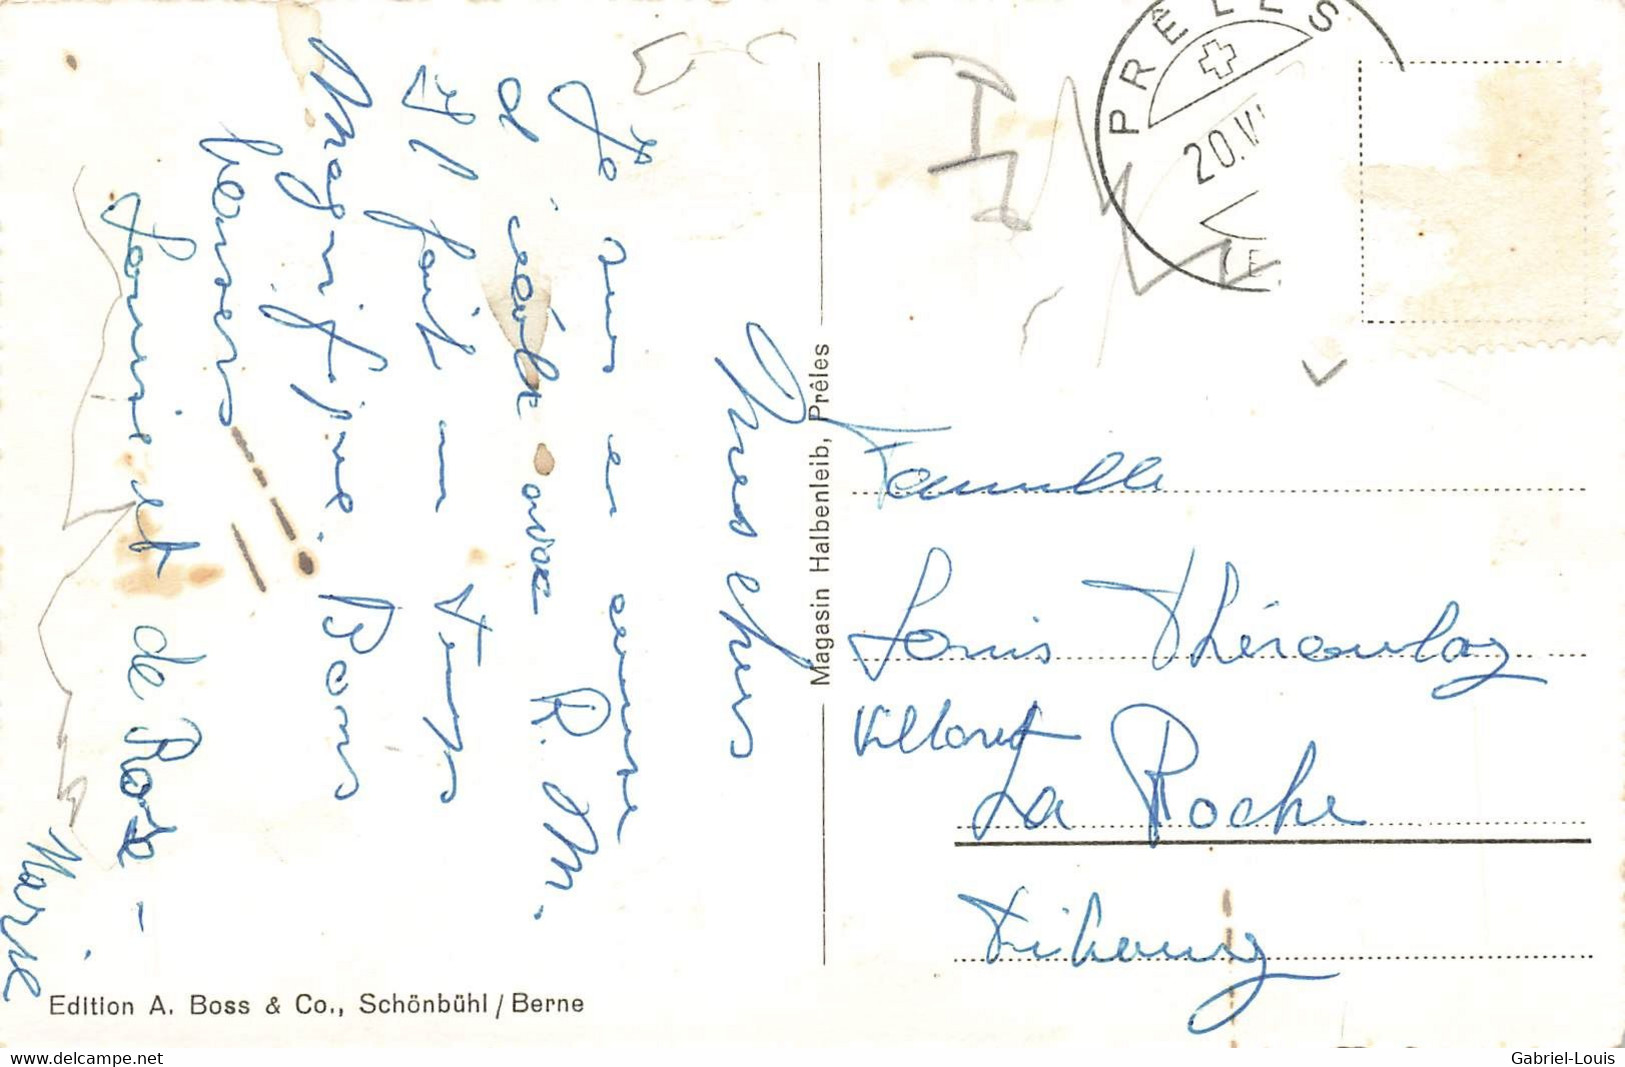 Mes chers
Je suis en course
d'école avec R. M.
Il fait un temps
Magnifique. Bons
baisers
Louis et de Rose-
Marie
Edition A. Boss & Co., Schönbühl / Berne
Magasin Halbenleib, Prêles
PRÊLES
20.VI
Famille
Louis Théraulaz
Villaret
La Roche
Fribourg
delcampe.net
Gabriel-Louis